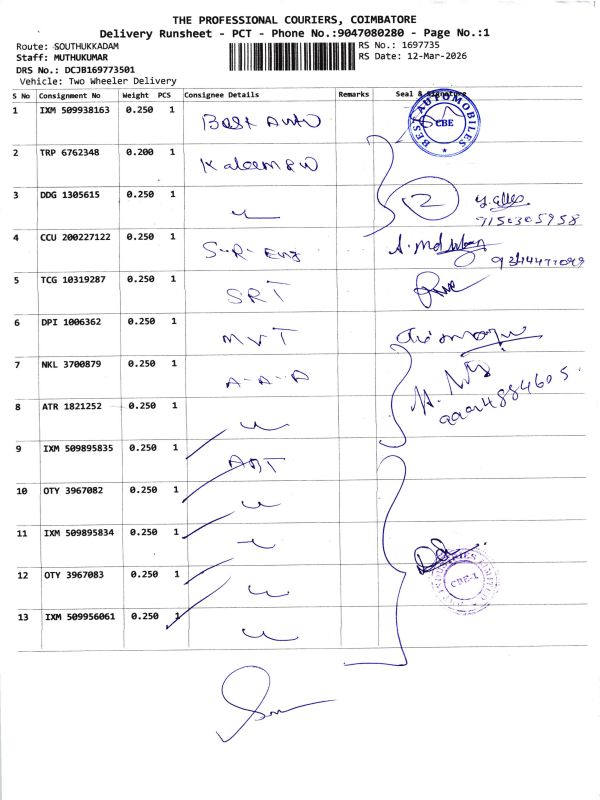 THE PROFESSIONAL COURIERS, COIMBATORE
Delivery Runsheet - PCT - Phone No.:9047080280 - Page No.:1
Route: SOUTHUKKADAM
RS No.: 1697735
Staff: MUTHUKUMAR
RS Date: 12-Mar-2026
DRS No.: DCJB169773501
Vehicle: Two Wheeler Delivery
S No Consignment No Weight PCS Consignee Details Remarks Seal & Signature
1 IXM 509938163 0.250 1 Best Auto
BEST AUTOMOBILES CBE
2 TRP 6762348 0.200 1
3 DDG 1305615 0.250 1 2
9150305958
4 CCU 200227122 0.250 1 S-R-Eng
5 TCG 10319287 0.250 1 SRT
6 DPI 1006362 0.250 1 MVT
7 NKL 3700879 0.250 1 A-A-A
8 ATR 1821252 0.250 1
9 IXM 509895835 0.250 1 ART
10 OTY 3967082 0.250 1
11 IXM 509895834 0.250 1
12 OTY 3967083 0.250 1
CBE-1
13 IXM 509956061 0.250 1